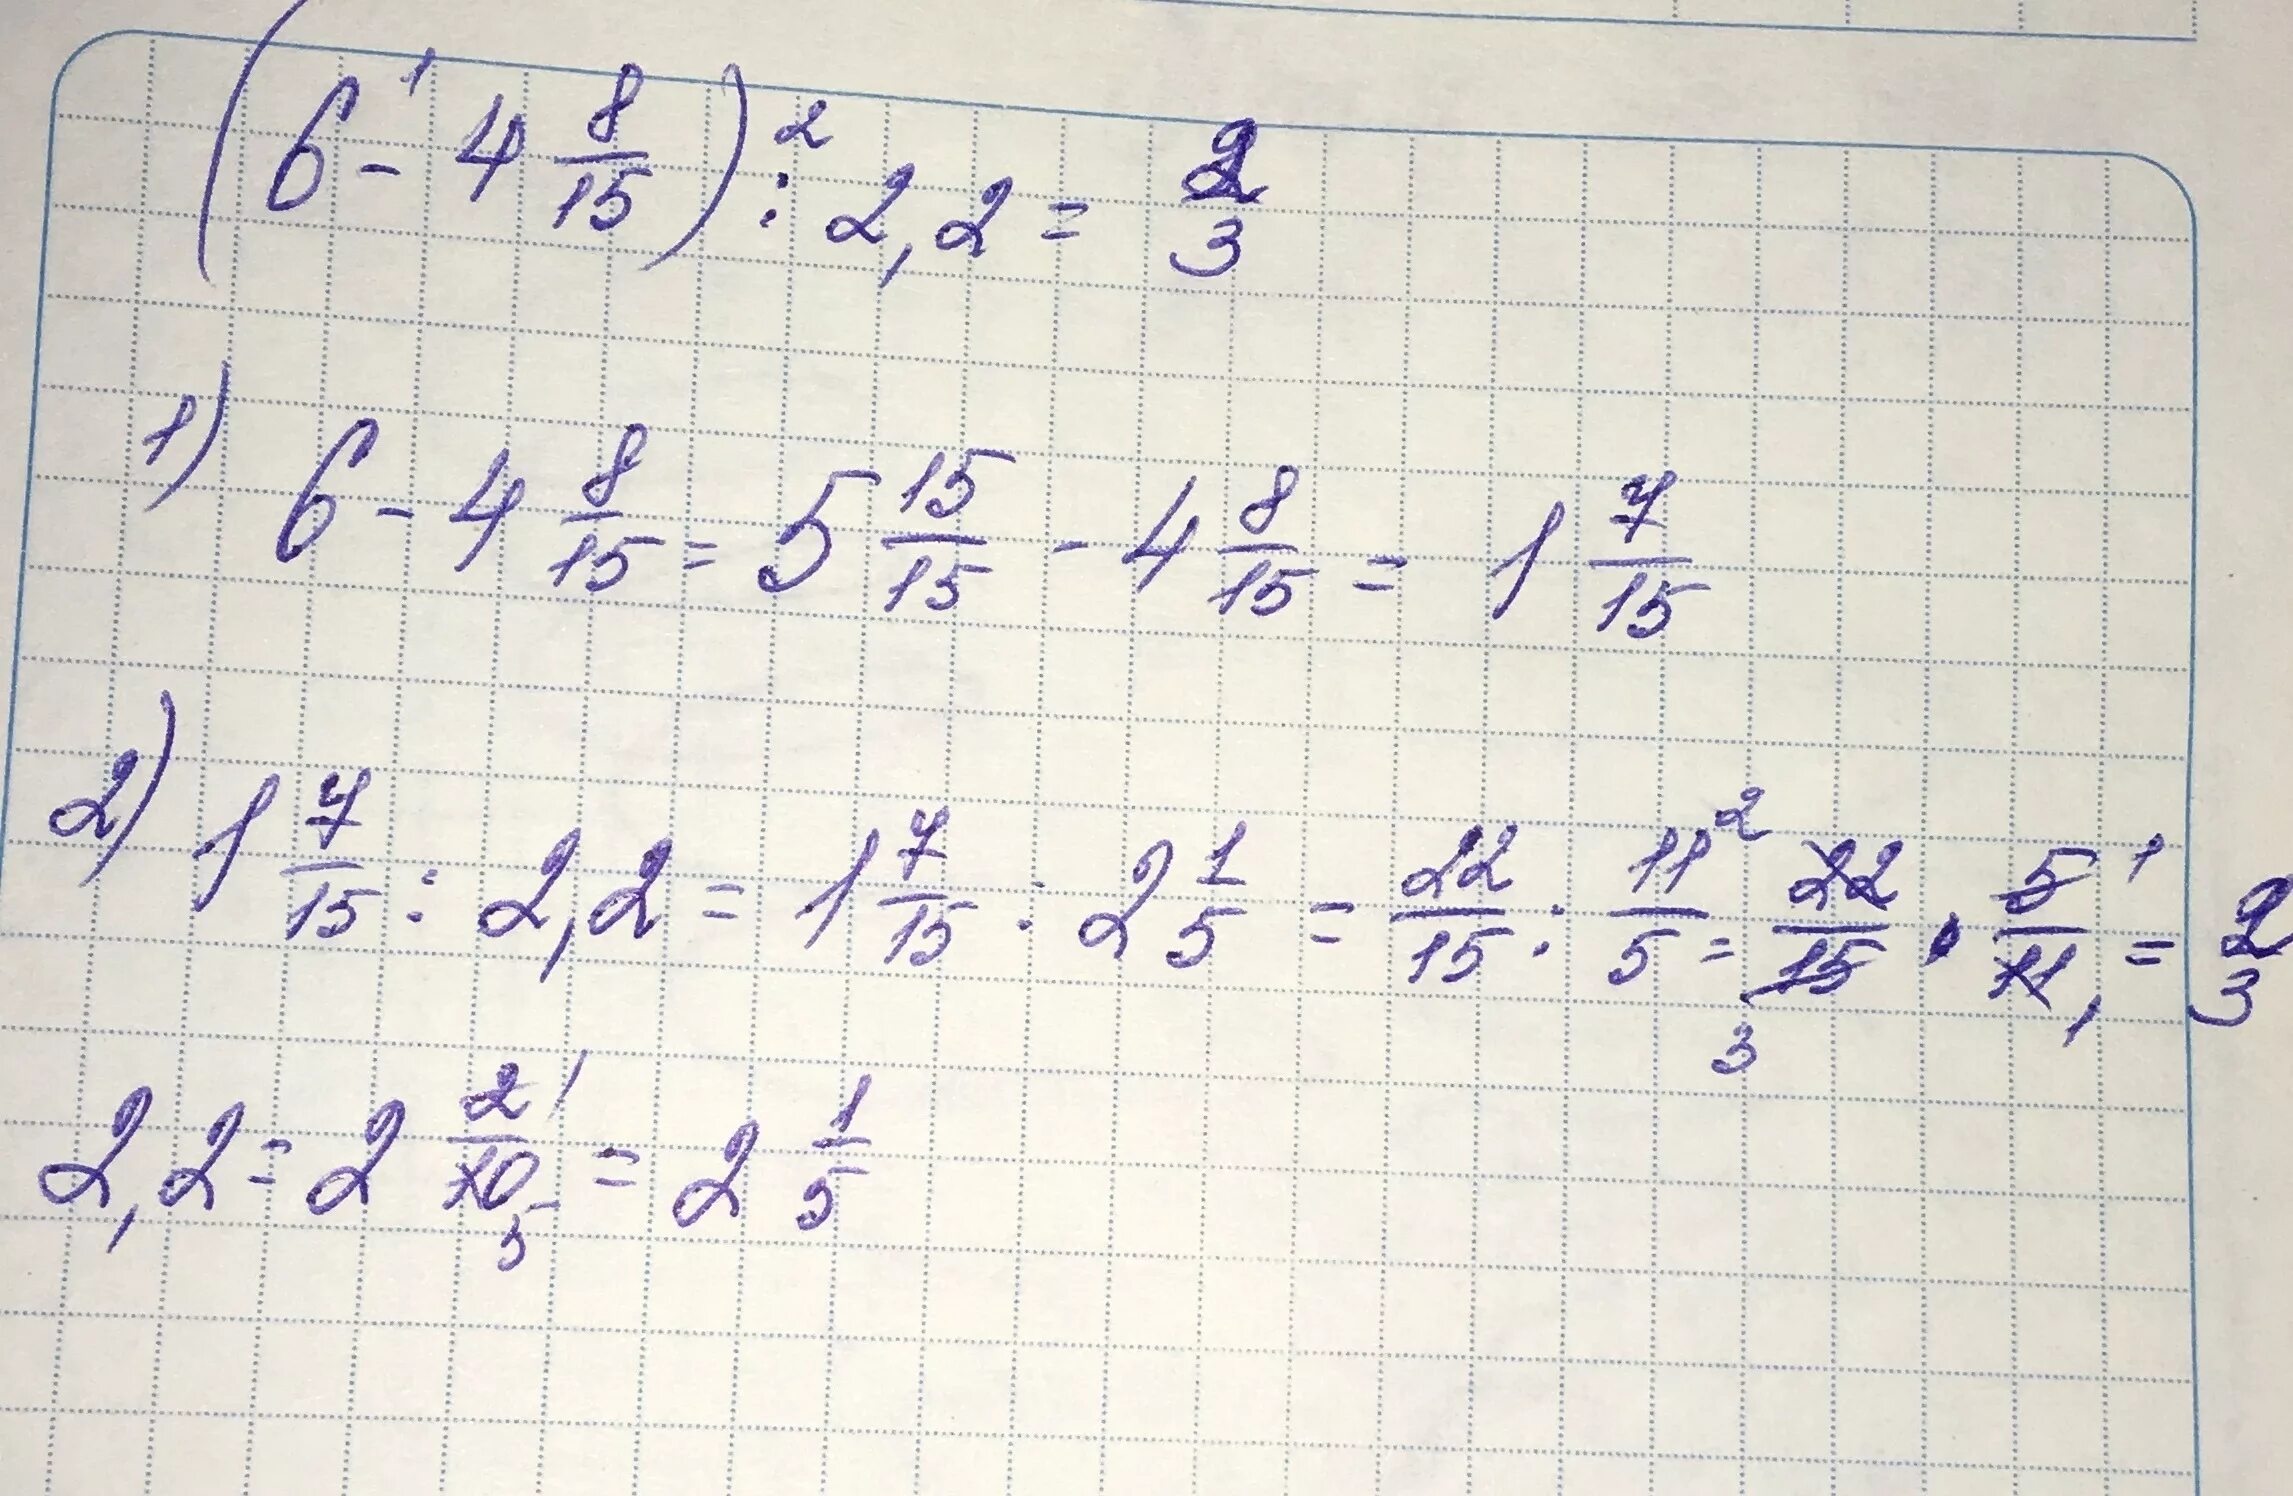 (6 -¹ 4 8/15) :² 2,2 = 2/3
1) 6 - 4 8/15 = 5 15/15 - 4 8/15 = 1 7/15
2) 1 7/15 : 2,2 = 1 7/15 : 2 1/5 = 22/15 : 11/5 = 22²/15₃ · 5¹/11₁ = 2/3
2,2 = 2 2¹/10₅ = 2 1/5